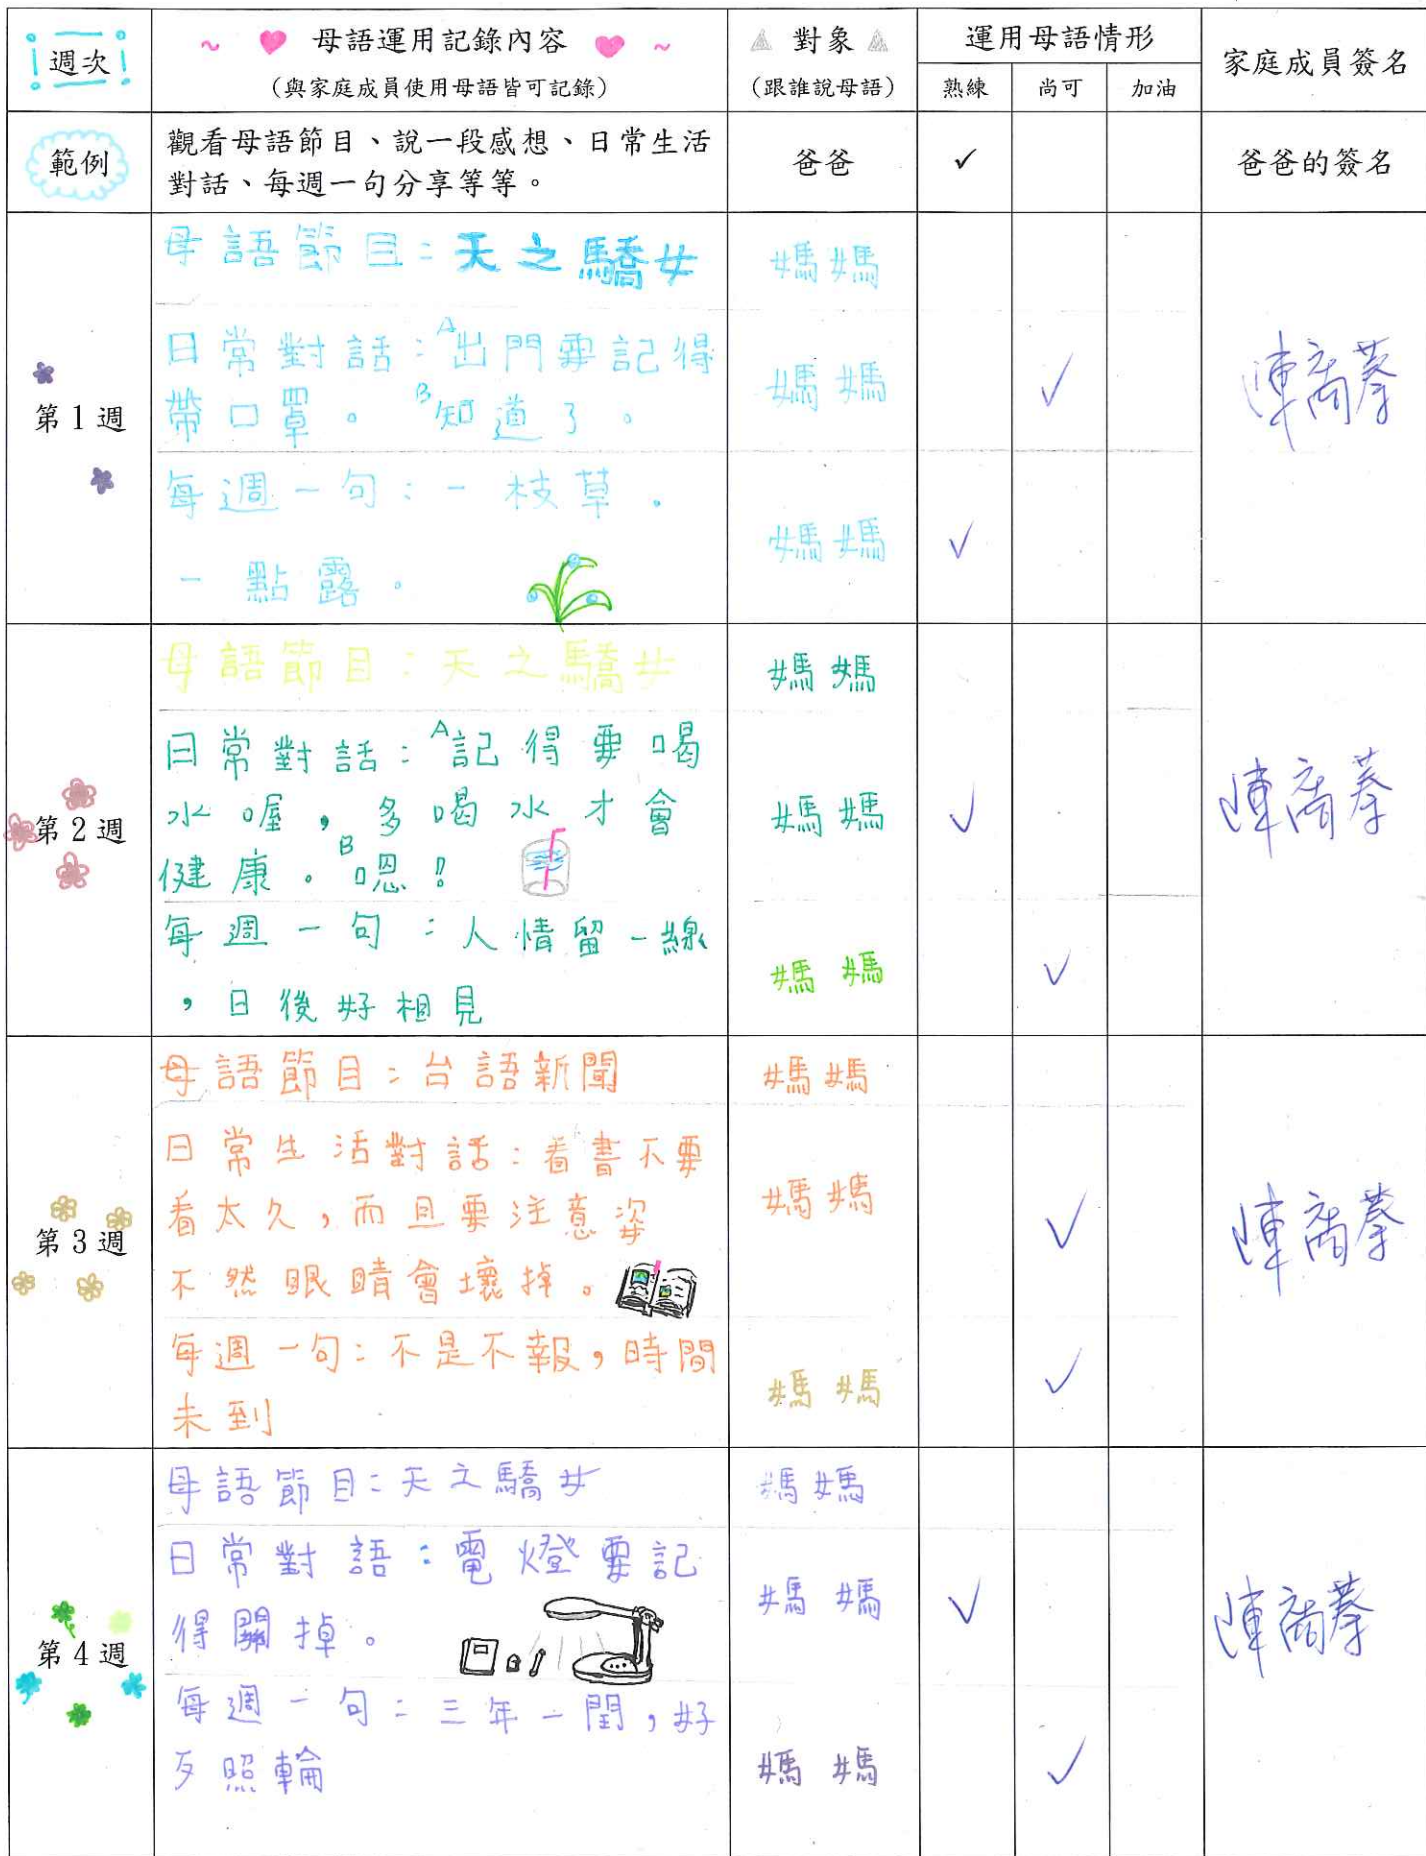 週次
~ 母語運用記錄內容 ~
(與家庭成員使用母語皆可記錄)
對象
(跟誰說母語)
運用母語情形
熟練 尚可 加油
家庭成員簽名
範例
觀看母語節目、說一段感想、日常生活
對話、每週一句分享等等。
爸爸
✓
爸爸的簽名
第1週
母語節目:天之驕女
媽媽
日常對話:A出門要記得
帶口罩。B知道了。
媽媽
✓
每週一句:一枝草.
一點露。
媽媽
✓
第2週
母語節目:天之驕女
媽媽
日常對話:A記得要喝
水喔,多喝水才會
健康。B嗯!
媽媽
✓
每週一句:人情留一線
,日後好相見
媽媽
✓
第3週
母語節目:台語新聞
媽媽
日常生活對話:看書不要
看太久,而且要注意姿
不然眼睛會壞掉。
媽媽
✓
每週一句:不是不報,時間
未到
媽媽
✓
第4週
母語節目:天之驕女
媽媽
日常對語:電燈要記
得關掉。
媽媽
✓
每週一句:三年一閏,好
歹照輪
媽媽
✓